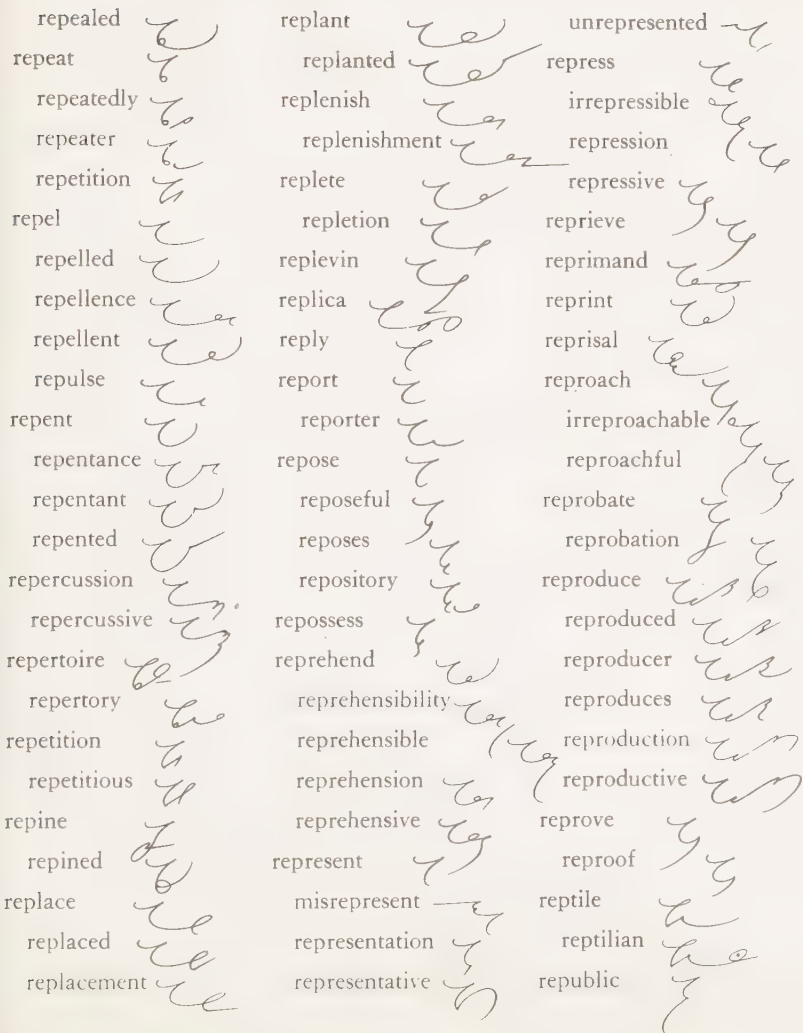 repealed
repeat
repeatedly
repeater
repetition
repel
repelled
repellence
repellent
repulse
repent
repentance
repentant
repented
repercussion
repercussive
repertoire
repertory
repetition
repetitious
repine
repined
replace
replaced
replacement
replant
replanted
replenish
replenishment
replete
repletion
replevin
replica
reply
report
reporter
repose
reposeful
reposes
repository
repossess
reprehend
reprehensibility
reprehensible
reprehension
reprehensive
represent
misrepresent
representation
representative
unrepresented
repress
irrepressible
repression
repressive
reprieve
reprimand
reprint
reprisal
reproach
irreproachable
reproachful
reprobate
reprobation
reproduce
reproduced
reproducer
reproduces
reproduction
reproductive
reprove
reproof
reptile
reptilian
republic